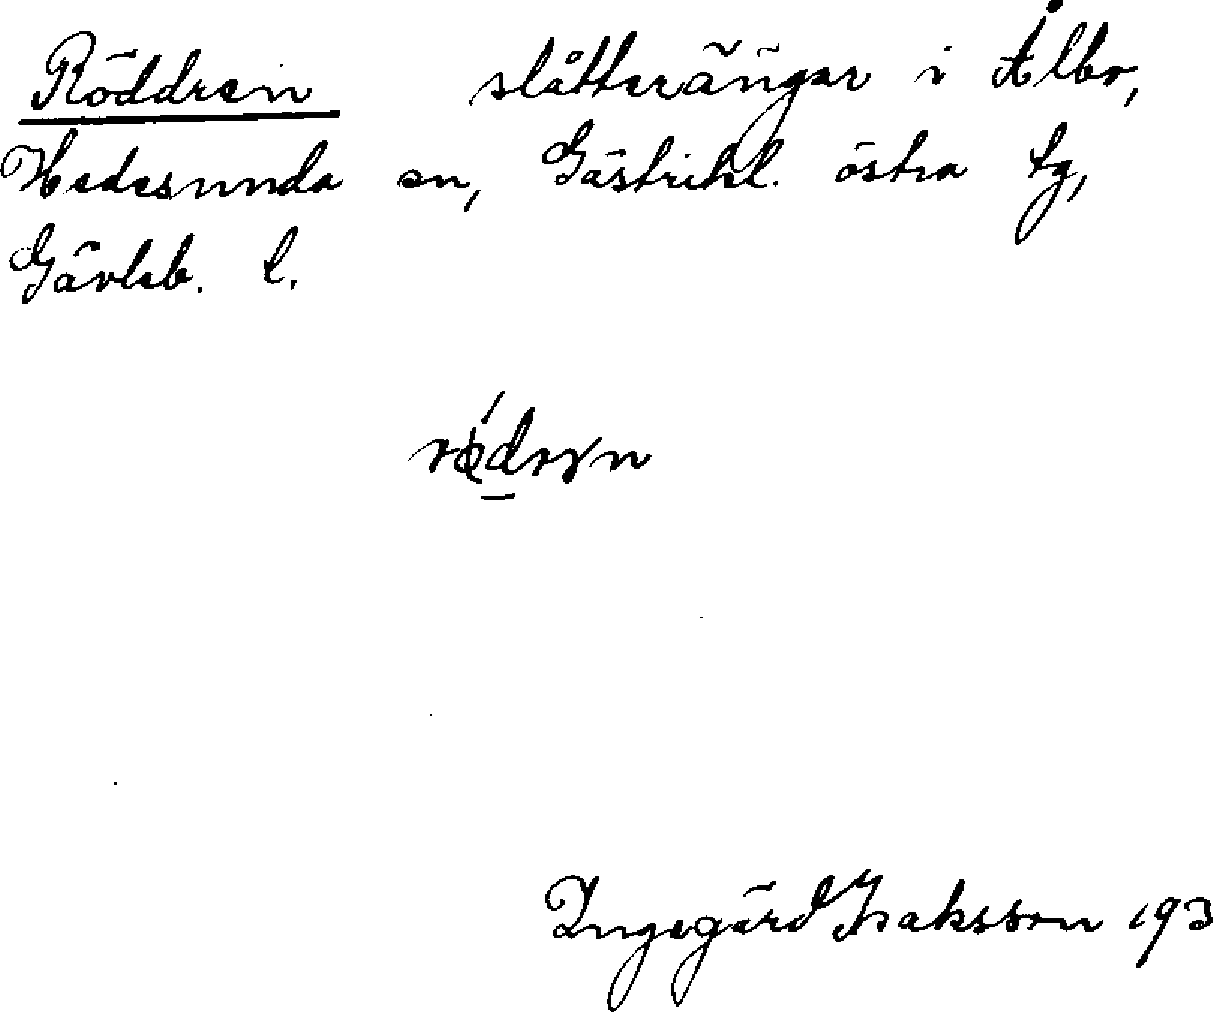 Röddren slåtterängar i Ålbo,
Hedesunda sn, Gästrikl. östra tg,
Gävleb. l.
Ingegärd Isaksson 193